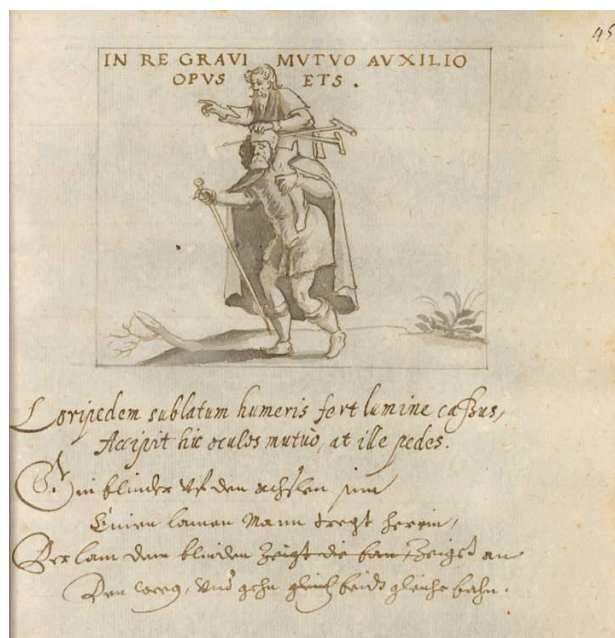 45
IN RE GRAVI MVTVO AVXILIO
OPVS ETS.
Loripedem sublatum humeris fert lumine caßus,
Accipit hic oculos mutuo, at ille pedes.
Ein blinder vf den achslen sin
Einen lamen Mann tregt herein,
Der lam dem blinden zeigt die ban zeigt an
Den weeg, vnd gehn gleich beidt gleiche bahn.